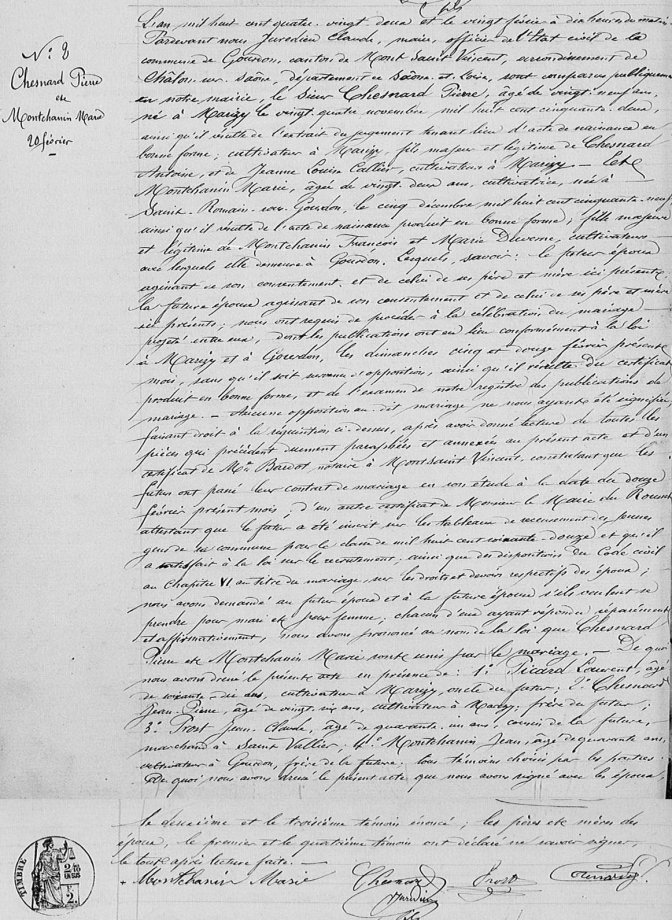 N.° 8
Chesnard Pierre
et
Montchanin Marie
20 février
L'an mil huit cent quatre-vingt-deux et le vingt février à dix heures du matin
Pardevant nous Juredieu Claude, maire, officier de l'Etat civil de la
commune de Gourdon, canton de Mont Saint Vincent, arrondissement de
Châlon sur Saône, département de Saône et Loire, sont comparus publiquement
en notre mairie, le sieur Chesnard Pierre, âgé de vingt-neuf ans,
né à Marizy le vingt quatre novembre mil huit cent cinquante-deux,
ainsi qu'il résulte de l'extrait du jugement tenant lieu d'acte de naissance en
bonne forme; cultivateur à Marizy, fils majeur et légitime de Chesnard
Antoine, et de Jeanne Louise Lallier, cultivateurs à Marizy — Et
Montchanin Marie, âgée de vingt-deux ans, cultivatrice, née à
Saint-Romain-sous-Gourdon, le cinq décembre mil huit cent cinquante-neuf
ainsi qu'il résulte de l'acte de naissance produit en bonne forme; fille majeure
et légitime de Montchanin François et Marie Duverne, cultivateurs
avec lesquels elle demeure à Gourdon. Lesquels, savoir: le futur époux
agissant de son consentement, et de celui de ses père et mère ici présents,
la future épouse agissant de son consentement et de celui de ses père et mère
ici présents; nous ont requis de procéder à la célébration du mariage
projeté entre eux, dont les publications ont eu lieu conformément à la loi
à Marizy et à Gourdon, les dimanches cinq et douze février présent
mois, sans qu'il soit survenu d'opposition, ainsi qu'il résulte du certificat
produit en bonne forme, et de l'examen de notre registre des publications de
mariage. — Aucune opposition au dit mariage ne nous ayant été signifiée
faisant droit à la réquisition ci-dessus, après avoir donné lecture de toutes les
pièces qui précèdent dûment paraphées et annexées au présent acte et d'un
certificat de Me Bardot notaire à Mont Saint Vincent, constatant que les
futurs ont passé leur contrat de mariage en son étude à la date du douze
février présent mois; d'un autre certificat de Monsieur le Maire du
attestant que le futur a été inscrit sur les tableaux de recensement des jeunes
gens de sa commune pour la classe de mil huit cent soixante-douze et qu'il
a satisfait à la loi sur le recrutement; ainsi que des dispositions du Code civil
au Chapitre VI au titre du mariage, sur les droits et devoirs respectifs des époux;
nous avons demandé au futur époux et à la future épouse s'ils veulent se
prendre pour mari et pour femme; chacun d'eux ayant répondu séparément
et affirmativement, nous avons prononcé au nom de la loi que Chesnard
Pierre et Montchanin Marie sont unis par le mariage. — De quoi
nous avons dressé le présent acte en présence de: 1° Picard Laurent, âgé
de soixante-dix ans, cultivateur à Marizy, oncle du futur; 2° Chesnard
Jean-Pierre, âgé de vingt-six ans, cultivateur à Marizy, frère du futur;
3° Prost Jean-Claude, âgé de quarante-un ans, cousin de la future,
marchand à Saint Vallier; 4° Montchanin Jean, âgé de quarante ans,
cultivateur à Gourdon, frère de la future: tous témoins choisis par les parties.
De quoi nous avons dressé le présent acte que nous avons signé avec les époux
le deuxième et le troisième témoin énoncé; les pères et mères des
époux, le premier et le quatrième témoin ont déclaré ne savoir signer,
le tout après lecture faite. —
Montchanin Marie Chesnard Prost
Juredieu
TIMBRE